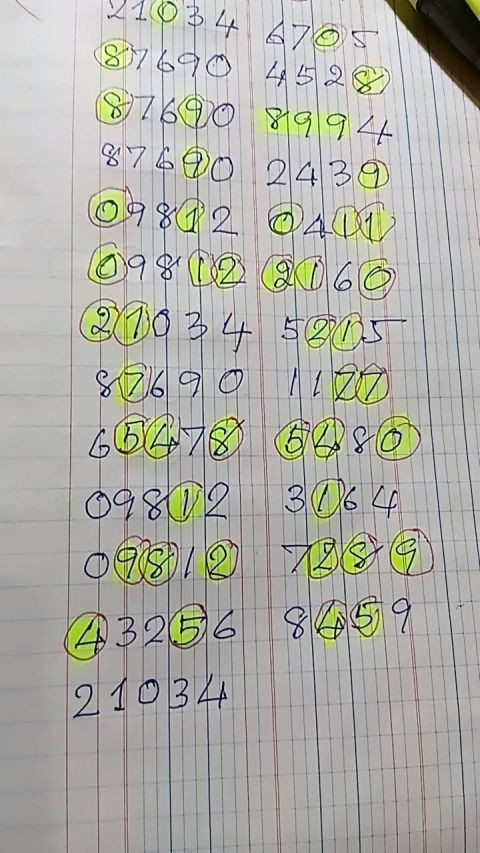 21034 6705
87690 4528
87690 8994
87690 2439
09812 0411
09812 2160
21034 5215
87690 1177
65478 5480
09812 3164
09812 7289
43256 8459
21034